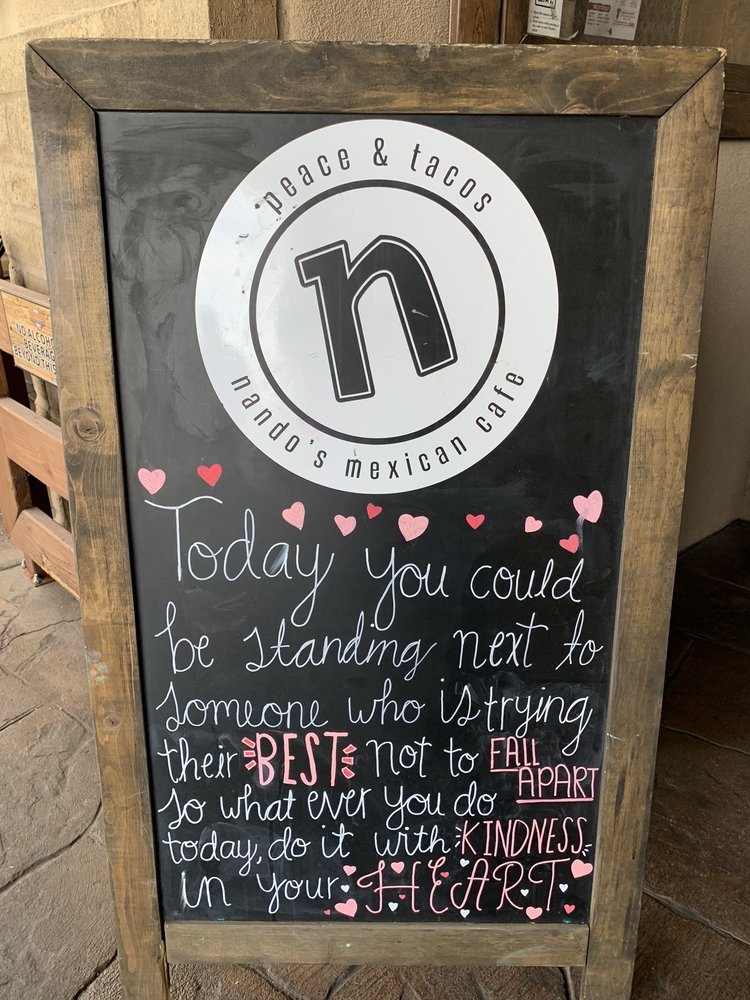 peace & tacos
n
nando's mexican cafe
NO ALCOHO
BEVERAG
BEYOND THIS
Today you could
be standing next to
someone who is trying
their BEST not to FALL
APART
so what ever you do
today, do it with KINDNESS
in your HEART.